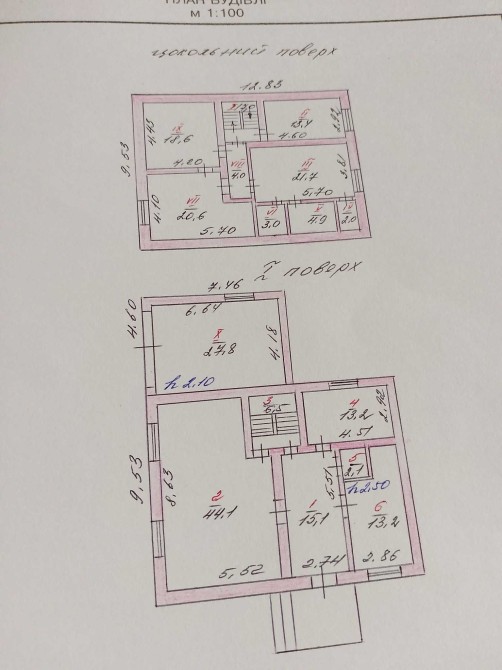 ПЛАН БУДІВЛІ
м 1:100
цокольний поверх
12.83
9.53
4.43
IX
18,6
4.20
II
13,4
4.60
2.92
VIII
4.0
III
21,7
5.70
3.81
4.10
VII
20,6
5.70
VI
3,0
V
4.9
IV
2.0
I поверх
7.46
4.60
6.64
X
27,8
4.18
h 2.10
3
6,5
4
13,2
4.51
2.92
9.53
8.63
2
44,1
5,52
1
15,1
5.51
2.74
5
2,1
h 2.50
6
13,2
2.86